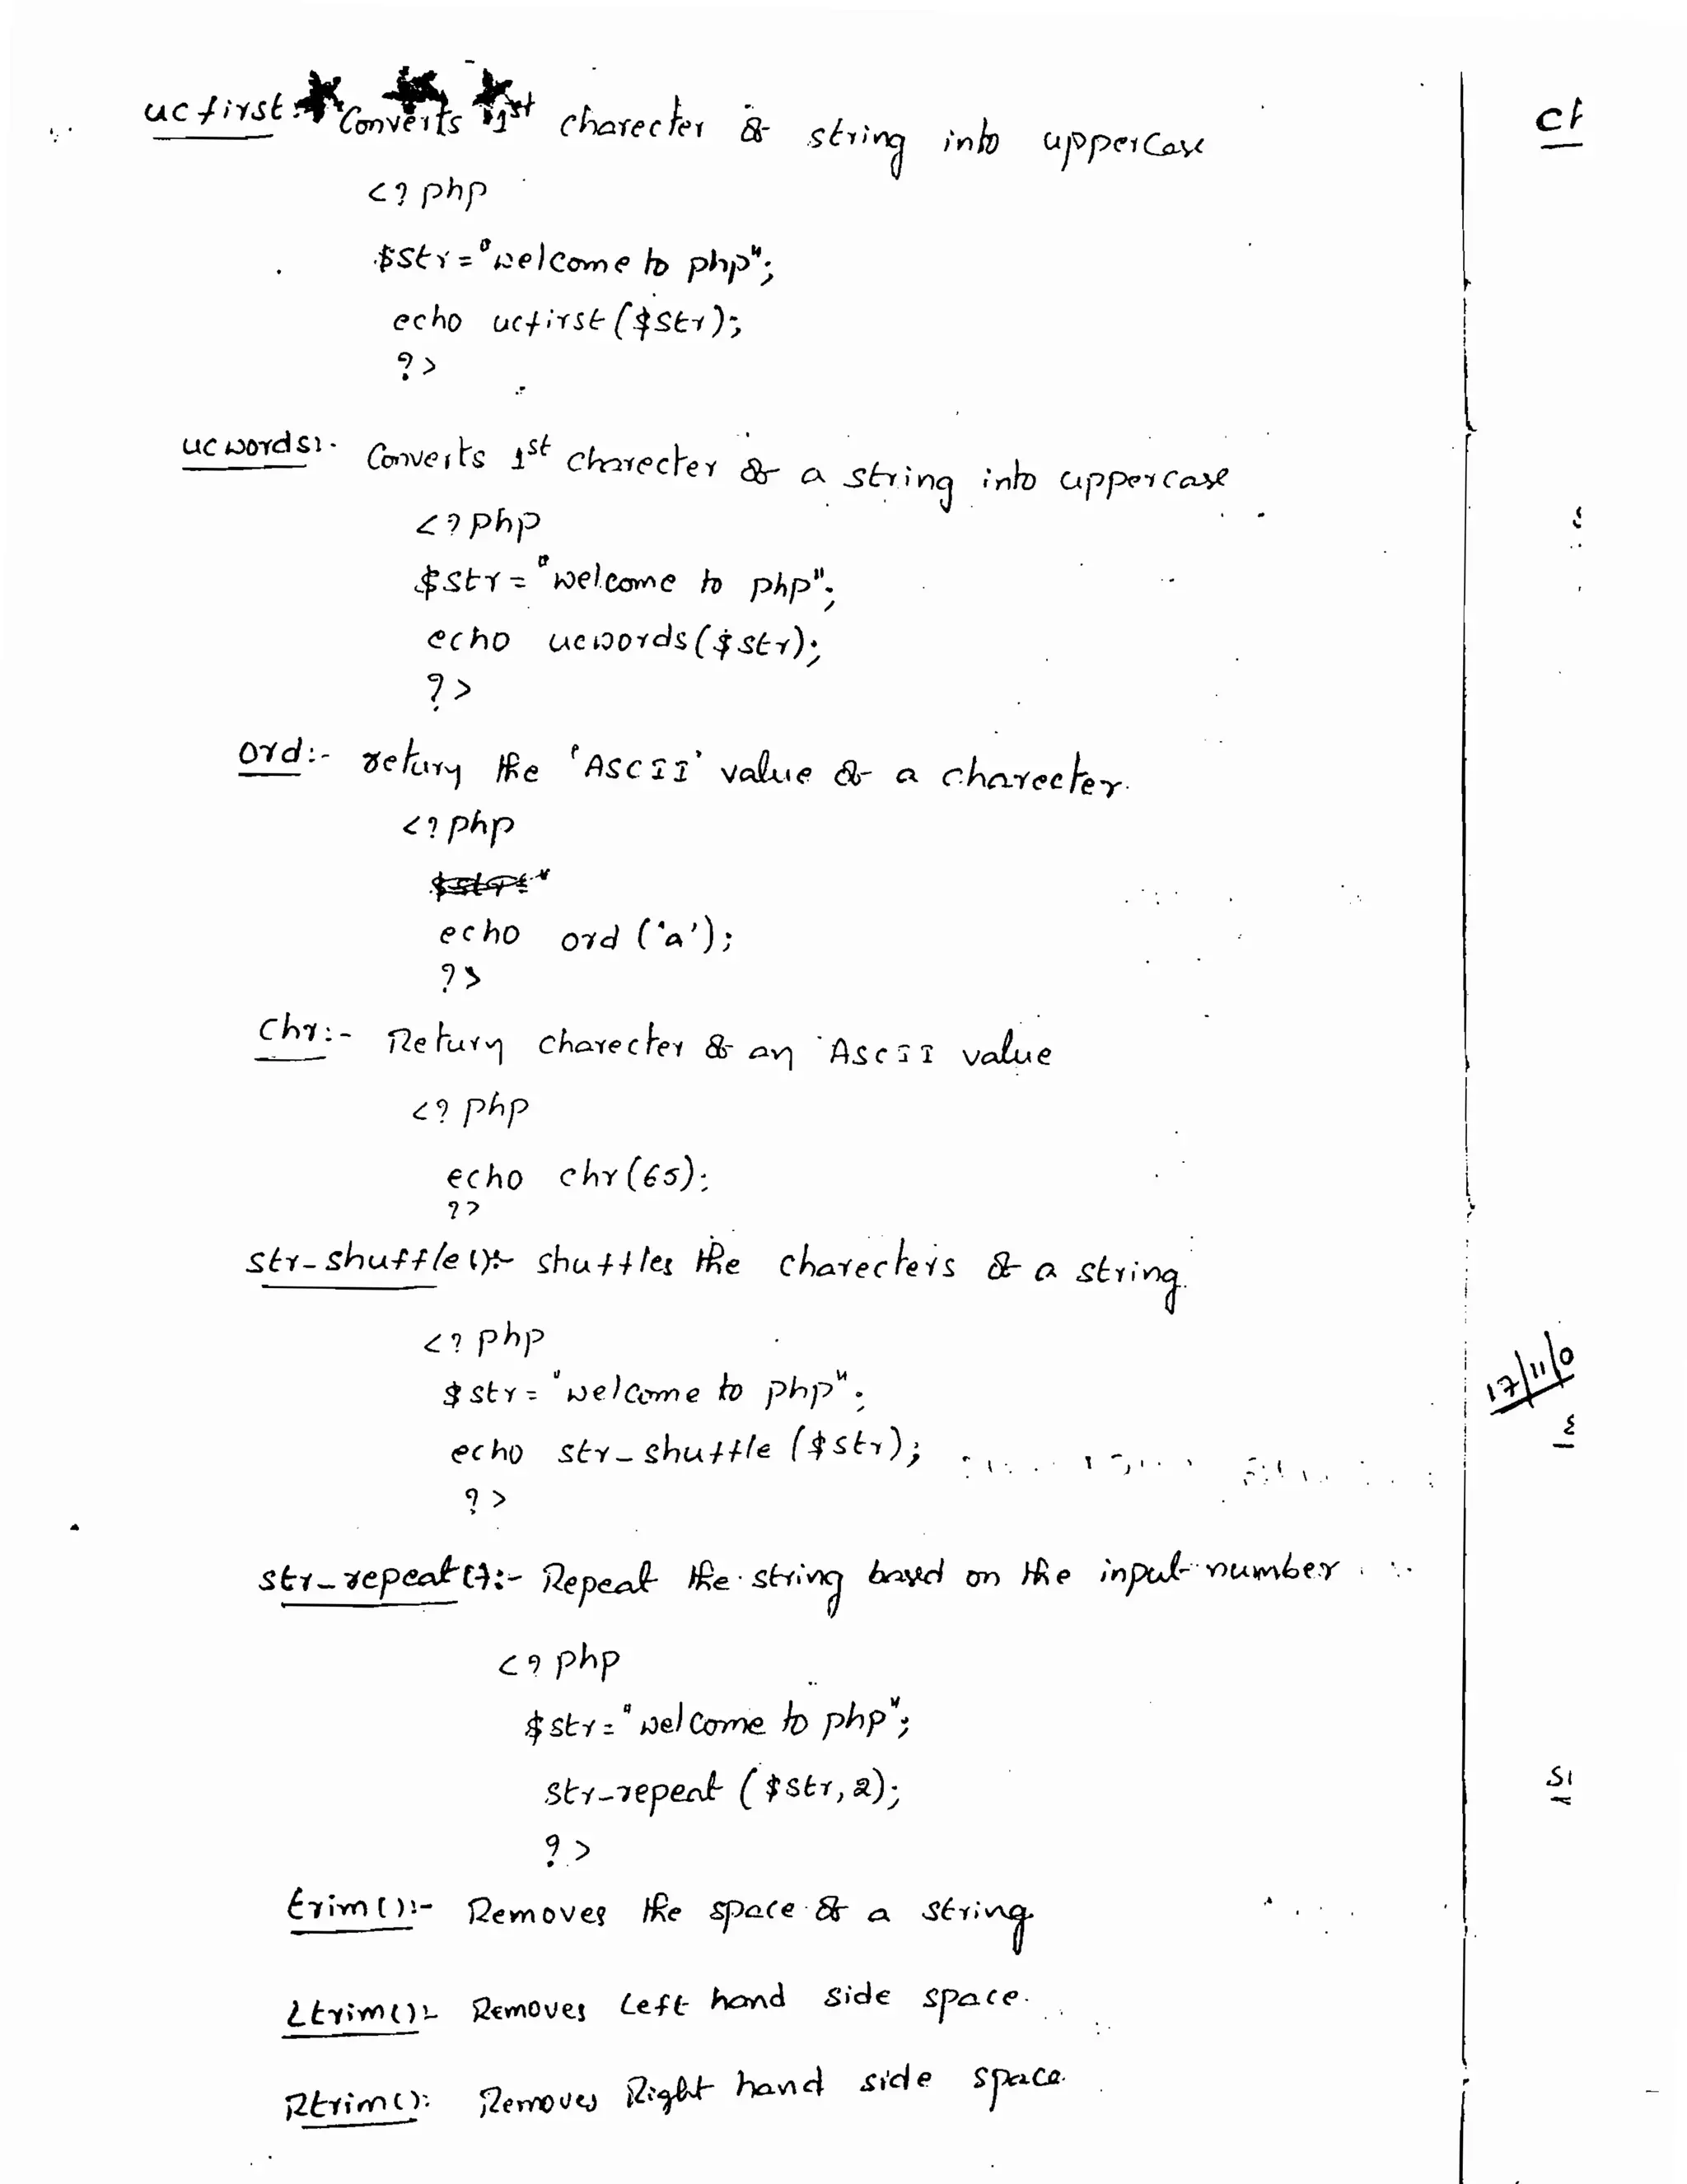 ucfirst:- Converts 1st charecter of string into uppercase
<? php
$str="welcome to php";
echo ucfirst($str);
?>
ucwords:- Converts 1st charecter of a string into uppercase
<? php
$str = "welcome to php";
echo ucwords($str);
?>
ord:- return the 'ASCII' value of a charecter.
<? php
echo ord ('a');
?>
chr:- Return charecter of an ASCII value
<? php
echo chr(65);
??
str_shuffle():- shuffles the charecters of a string.
<? php
$str = "welcome to php";
echo str_shuffle ($str);
?>
str_repeat():- Repeat the string based on the input number.
<? php
$str = "welcome to php";
str_repeat ($str, 2);
?>
trim():- Removes the space of a string
Ltrim():- Removes Left hand side space.
Rtrim(): Removes Right hand side space.
17/11/0